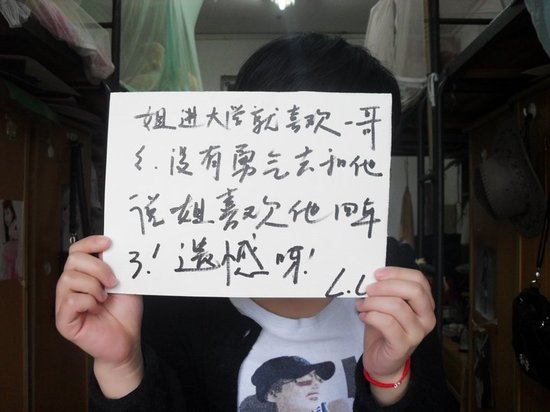 姐进大学就喜欢一哥
们.没有勇气去和他
说姐喜欢他四年
了!遗憾呀!
L.L